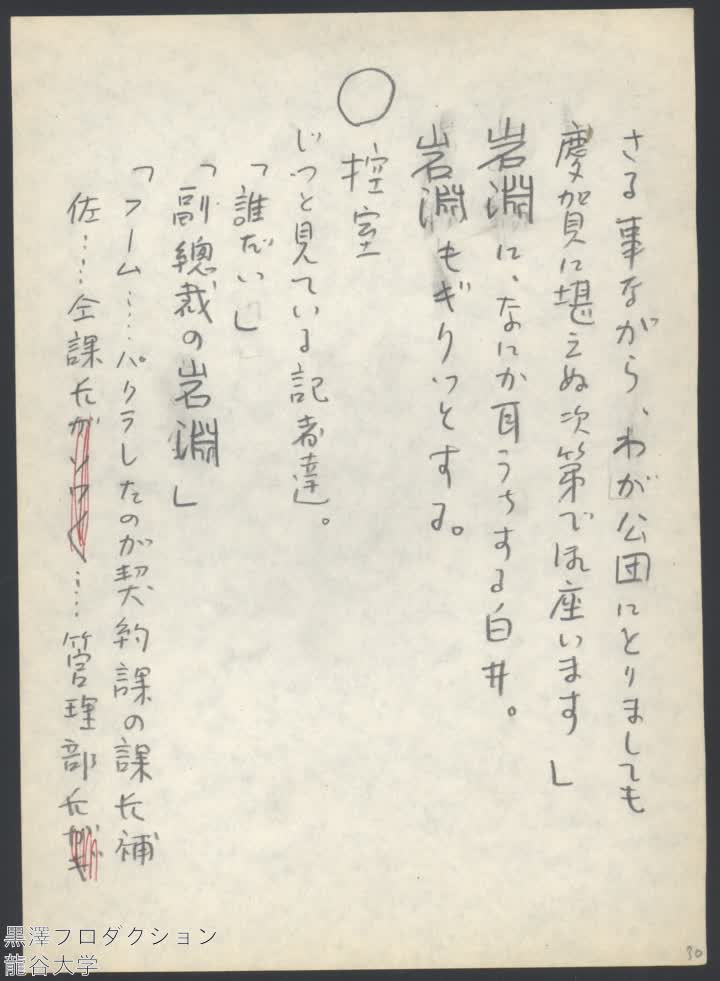 さる事ながら、わが公団にとりましても
慶賀に堪えぬ次第で御座います」
岩淵に、なにか耳うちする白井。
岩淵もぎりっとする。
○
控室
じっと見ている記者達。
「誰だい」
「副總裁の岩淵」
「フーム……パクラしたのが契約課の課長補
佐……仝課長がソワ〱……管理部長がギ
30
黒澤プロダクション
龍谷大学